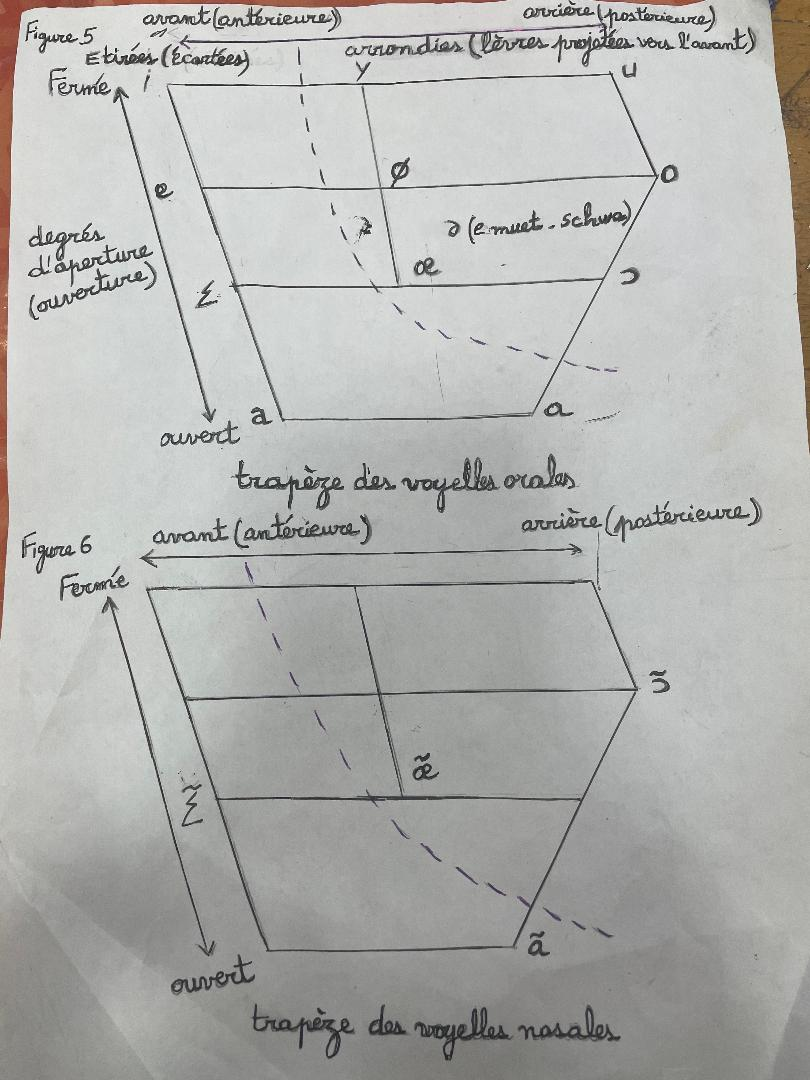 Figure 5
avant (antérieure)
arrière (postérieure)
Etirées (écartées)
arrondies (lèvres projetées vers l'avant)
Fermé
i
y
u
e
ø
o
degrés
d'aperture
(ouverture)
ə (e muet - schwa)
œ
ɛ
ɔ
ouvert
a
ɑ
trapèze des voyelles orales
Figure 6
avant (antérieure)
arrière (postérieure)
Fermé
ɔ̃
œ̃
ɛ̃
ɑ̃
ouvert
trapèze des voyelles nasales